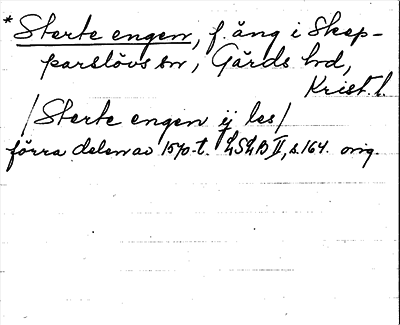 * Sterte engen, f. äng i Skep-
parslövs sn, Gärds hd,
Krist. l.
/Sterte engen ij les/
förra delen av 1570-t. LSLB II, s. 164. orig.